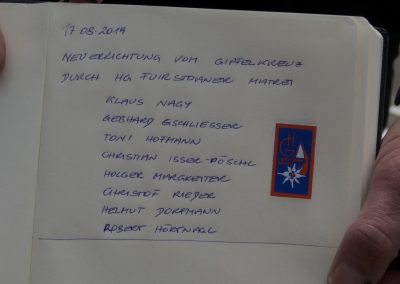 17.08.2019
NEUERRICHTUNG VOM GIPFELKREUZ
DURCH HG FUIRSTOANER MATREI
KLAUS NAGY
GEBHARD GSCHLIESSER
TONI HOFMANN
CHRISTIAN ISSER-PÖSCHL
HOLGER MARGREITER
CHRISTOF RIEDER
HELMUT DORFMANN
ROBERT HÖRTNAGL
H
G